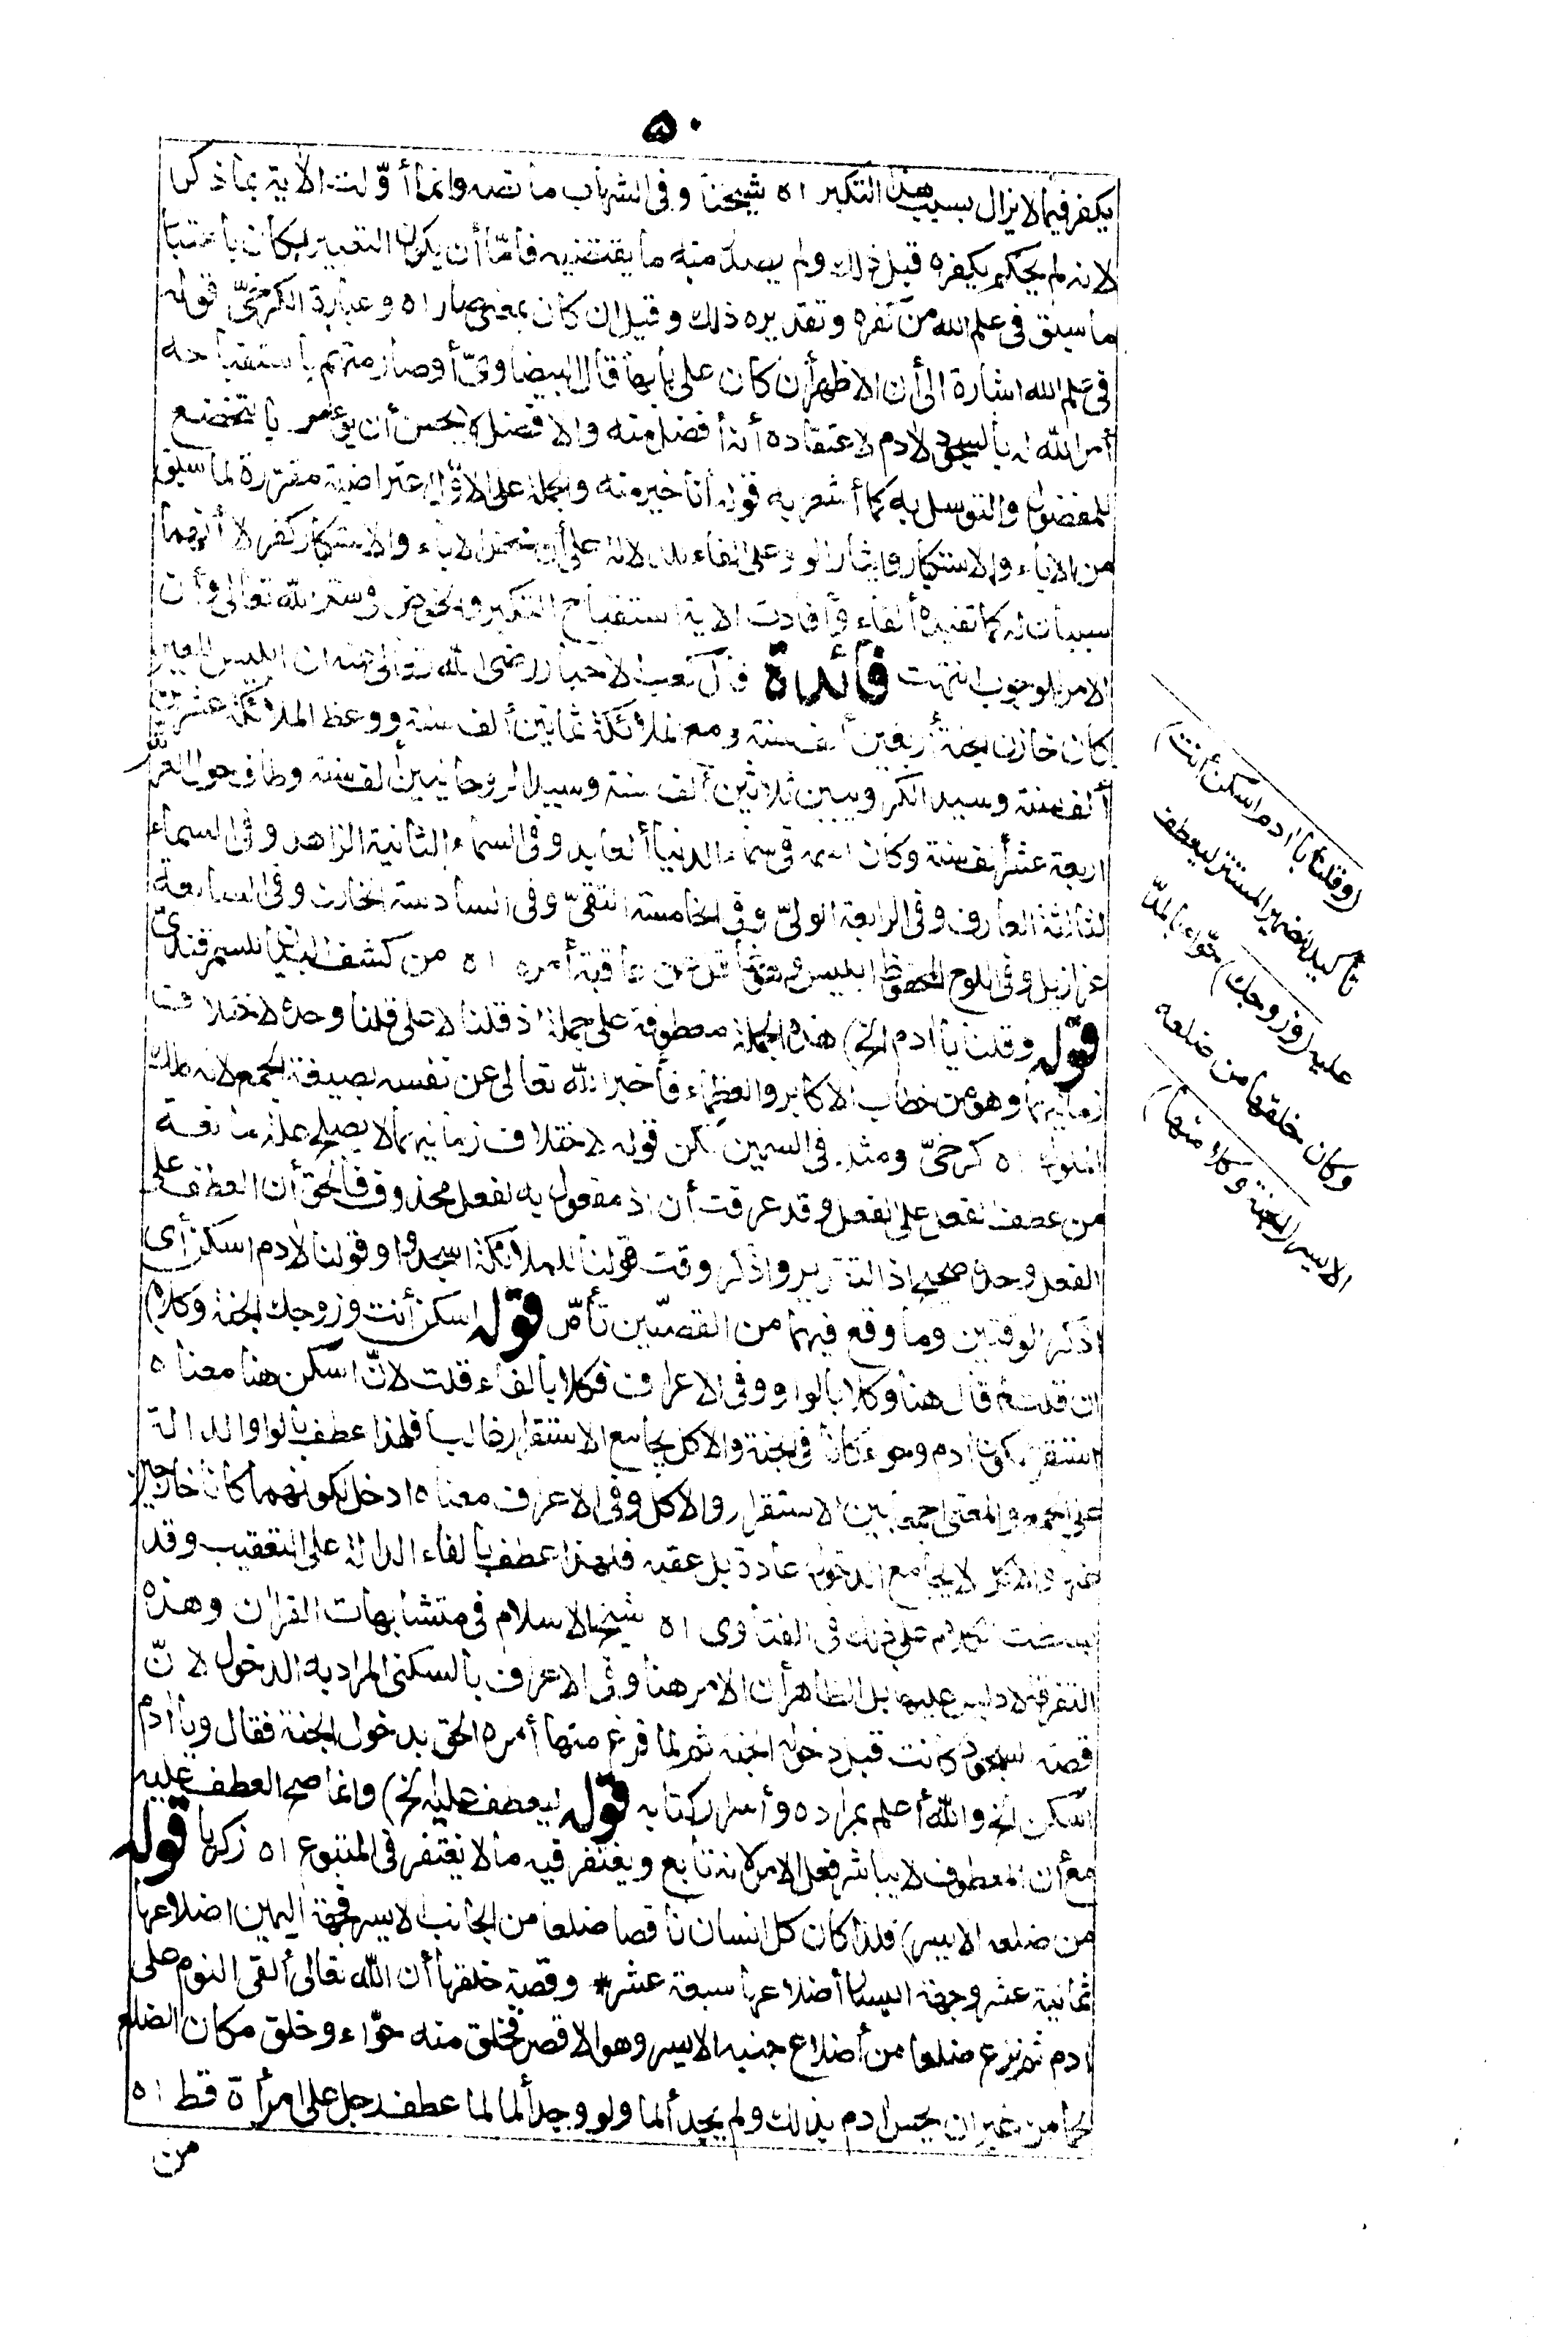 ٥٠
يكفر فيما لا يزال بسبب هذا التكبر اه شيخنا وفى الشهاب ما نصه وانما أوّلت الآية بما ذكر
لانه لم يحكم بكفره قبل ذلك ولم يصدر منه ما يقتضيه فامّا أن يكون التعبير بكان باعتبا
ما سبق فى علم الله من كفره وتقديره ذلك وقيل ان كان بمعنى صار اه وعبارة الكرخىّ قوله
فى علم الله اشارة الى أن الاظهر أن كان على بابها قال البيضاوىّ أو صار منهم باستقباحه
أمر الله له بالسجود لادم لاعتقاده أنه أفضل منه والافضل لا يحسن أن يؤمر بالتخضع
للمفضول والتوسل به كما أشعر به قوله أنا خير منه والجملة على الاوّل اعتراضية مقررة لما سبق
من الاباء والاستكبار وايثار الواو على الفاء للدلالة على أن محض الاباء والاستكبار كفر لا أنهما
سببان له كما تفيده الفاء وأفادت الاية استقباح التكبر والخوض فى سر الله تعالى وأن
الامر للوجوب انتهت فائدة قال كعب الاحبار رضى الله تعالى عنه ان ابليس اللعين
كان خازن الجنة أربعين ألف سنة ومع الملائكة ثمانين ألف سنة ووعظ الملائكة عشرين
ألف سنة وسيد الكروبيين ثلاثين ألف سنة وسيد الروحانيين ألف سنة وطاف حول العرش
اربعة عشر ألف سنة وكان اسمه فى سماء الدنيا العابد وفى السماء الثانية الزاهد وفى السماء
الثالثة العارف وفى الرابعة الولىّ وفى الخامسة التقىّ وفى السادسة الخازن وفى السابعة
عزازيل وفى اللوح المحفوظ ابليس وهو غافل عن عاقبة أمره اه من كشف البيان للسمرقندىّ
قوله وقلنا يا ادم الخ) هذه الجملة معطوفة على جملة اذ قلنا لا على قلنا وحده لاختلاف
زمانيهما وهو من خطاب الاكابر والعظماء فأخبر الله تعالى عن نفسه بصيغة الجمع لانه ملك
الملوك اه كرخىّ ومثله فى السمين لكن قوله لاختلاف زمانيهما لا يصلح علة مانعة
من عطف الفعل على الفعل وقد عرفت أن اذ مفعول به لفعل محذوف فالحق أن العطف على
الفعل وحده صحيح اذ التقدير واذكر وقت قولنا للملائكة اسجدوا وقولنا لادم اسكن أى
اذكر الوقتين وما وقع فيهما من القصّتين تأمّل قوله اسكن أنت وزوجك الجنة وكلا)
ان قلت لم قال هنا وكلا بالواو وفى الاعراف فكلا بالفاء قلت لانّ اسكن هنا معناه
استقر لكون ادم وحواء كانا فى الجنة والاكل يجامع الاستقرار غالبا فلهذا عطف بالواو الدالة
على الجمع والمعنى اجمعا بين الاستقرار والاكل وفى الاعراف معناه ادخل لكونهما كانا خارجين
عنها والاكل لا يجامع الدخول عادة بل عقبه فلهذا عطف بالفاء الدالة على التعقيب وقد
بسطت الكلام على ذلك فى الفتاوى اه شيخ الاسلام فى متشابهات القران وهذه
التفرقة لا دليل عليها بل الظاهر أن الامر هنا وفى الاعراف بالسكنى المراد به الدخول لانّ
قصة السجود كانت قبل دخول الجنة ثم لما فرغ منها أمره الحق بدخول الجنة فقال ويا ادم
اسكن الخ والله أعلم بمراده وأسرار كتابه قوله ليعطف عليه الخ) وانما صح العطف عليه
مع أن المعطوف لا يباشر فعل الامر لانه تابع ويغتفر فيه ما لا يغتفر فى المتبوع اه زكريا قوله
من ضلعه الايسر) فلذا كان كل انسان ناقصا ضلعا من الجانب الايسر فجهة اليمين اضلاعها
ثمانية عشر وجهة اليسار أضلاعها سبعة عشر * وقصة خلقها أن الله تعالى ألقى النوم على
ادم ثم نزع ضلعا من أضلاع جنبه الايسر وهو الاقصر فخلق منه حوّاء وخلق مكان الضلع
لحما من غير ان يحس ادم بذلك ولم يجد ألما ولو وجد ألما لما عطف رجل على امرأة قط اه
من
(وقلنا يا ادم اسكن أنت)
تأكيد للضمير المستتر ليعطف
عليه (وزوجك) حوّاء بالمدّ
وكان خلقها من ضلعه
الايسر (الجنة وكلا منها)